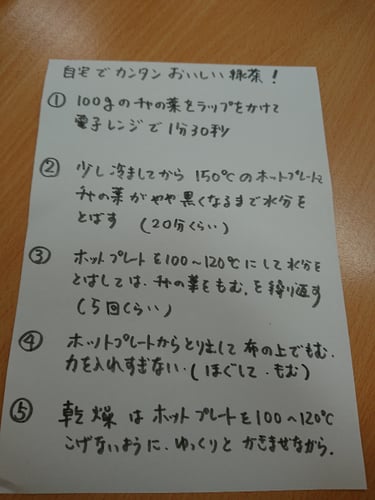 自宅でカンタンおいしい緑茶!
① 100gのチャの葉をラップをかけて
電子レンジで1分30秒
② 少し冷ましてから150℃のホットプレートで
チャの葉がやや黒くなるまで水分を
とばす (20分くらい)
③ ホットプレートを100~120℃にして水分を
とばしては、チャの葉をもむ。を繰り返す
(5回くらい)
④ ホットプレートからとり出して布の上でもむ。
力を入れすぎない。(ほぐして・もむ)
⑤ 乾燥はホットプレートを100~120℃
こげないように、ゆっくりとかきまぜながら。